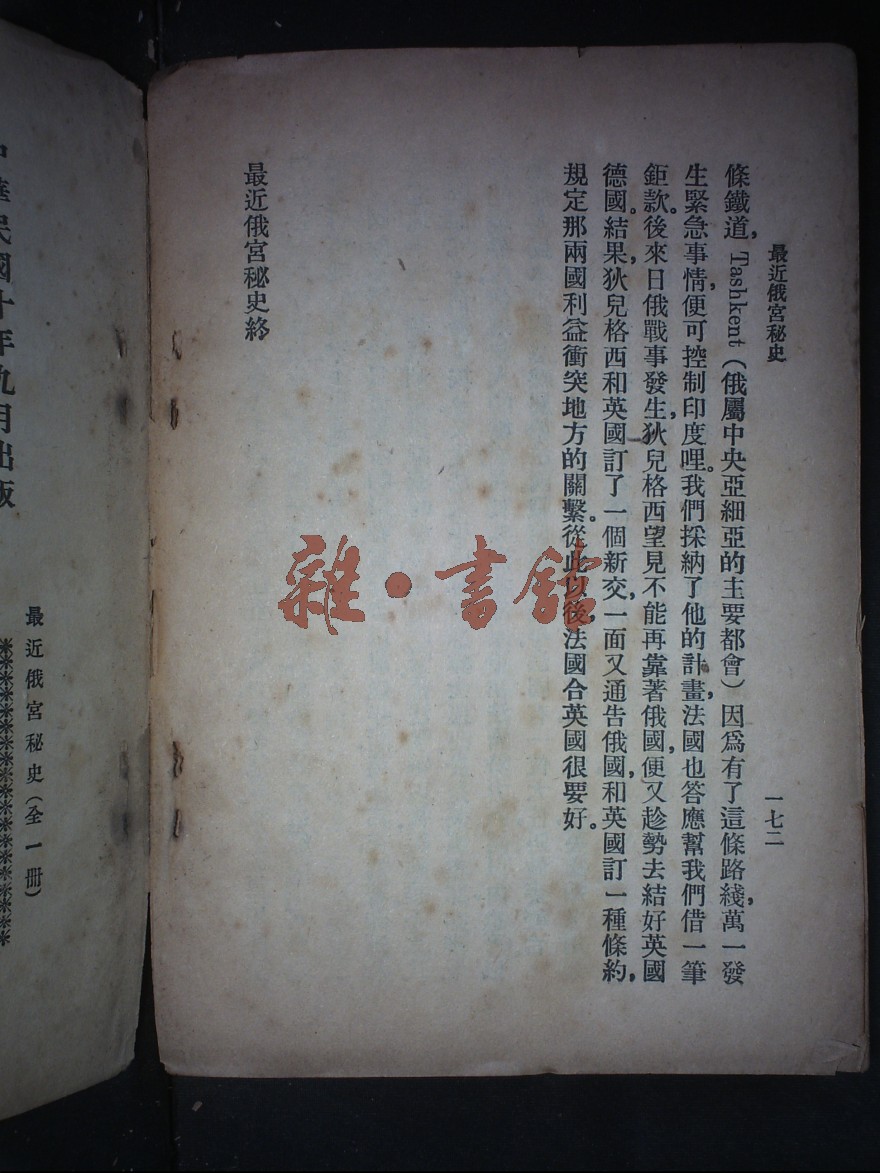 最近俄宮秘史
一七二
條鐵道，Tashkent（俄屬中央亞細亞的主要都會）因爲有了這條路綫，萬一發
生緊急事情，便可控制印度哩。我們採納了他的計畫，法國也答應幫我們借一筆
鉅款。後來日俄戰事發生，狄兒格西望見不能再靠著俄國，便又趁勢去結好英國
德國。結果，狄兒格西和英國訂了一個新交，一面又通告俄國，和英國訂一種條約，
規定那兩國利益衝突地方的關繫。從此以後，法國合英國很要好。
最近俄宮秘史終
雜·書館
中華民國十年九月出版
最近俄宮秘史（全一冊）